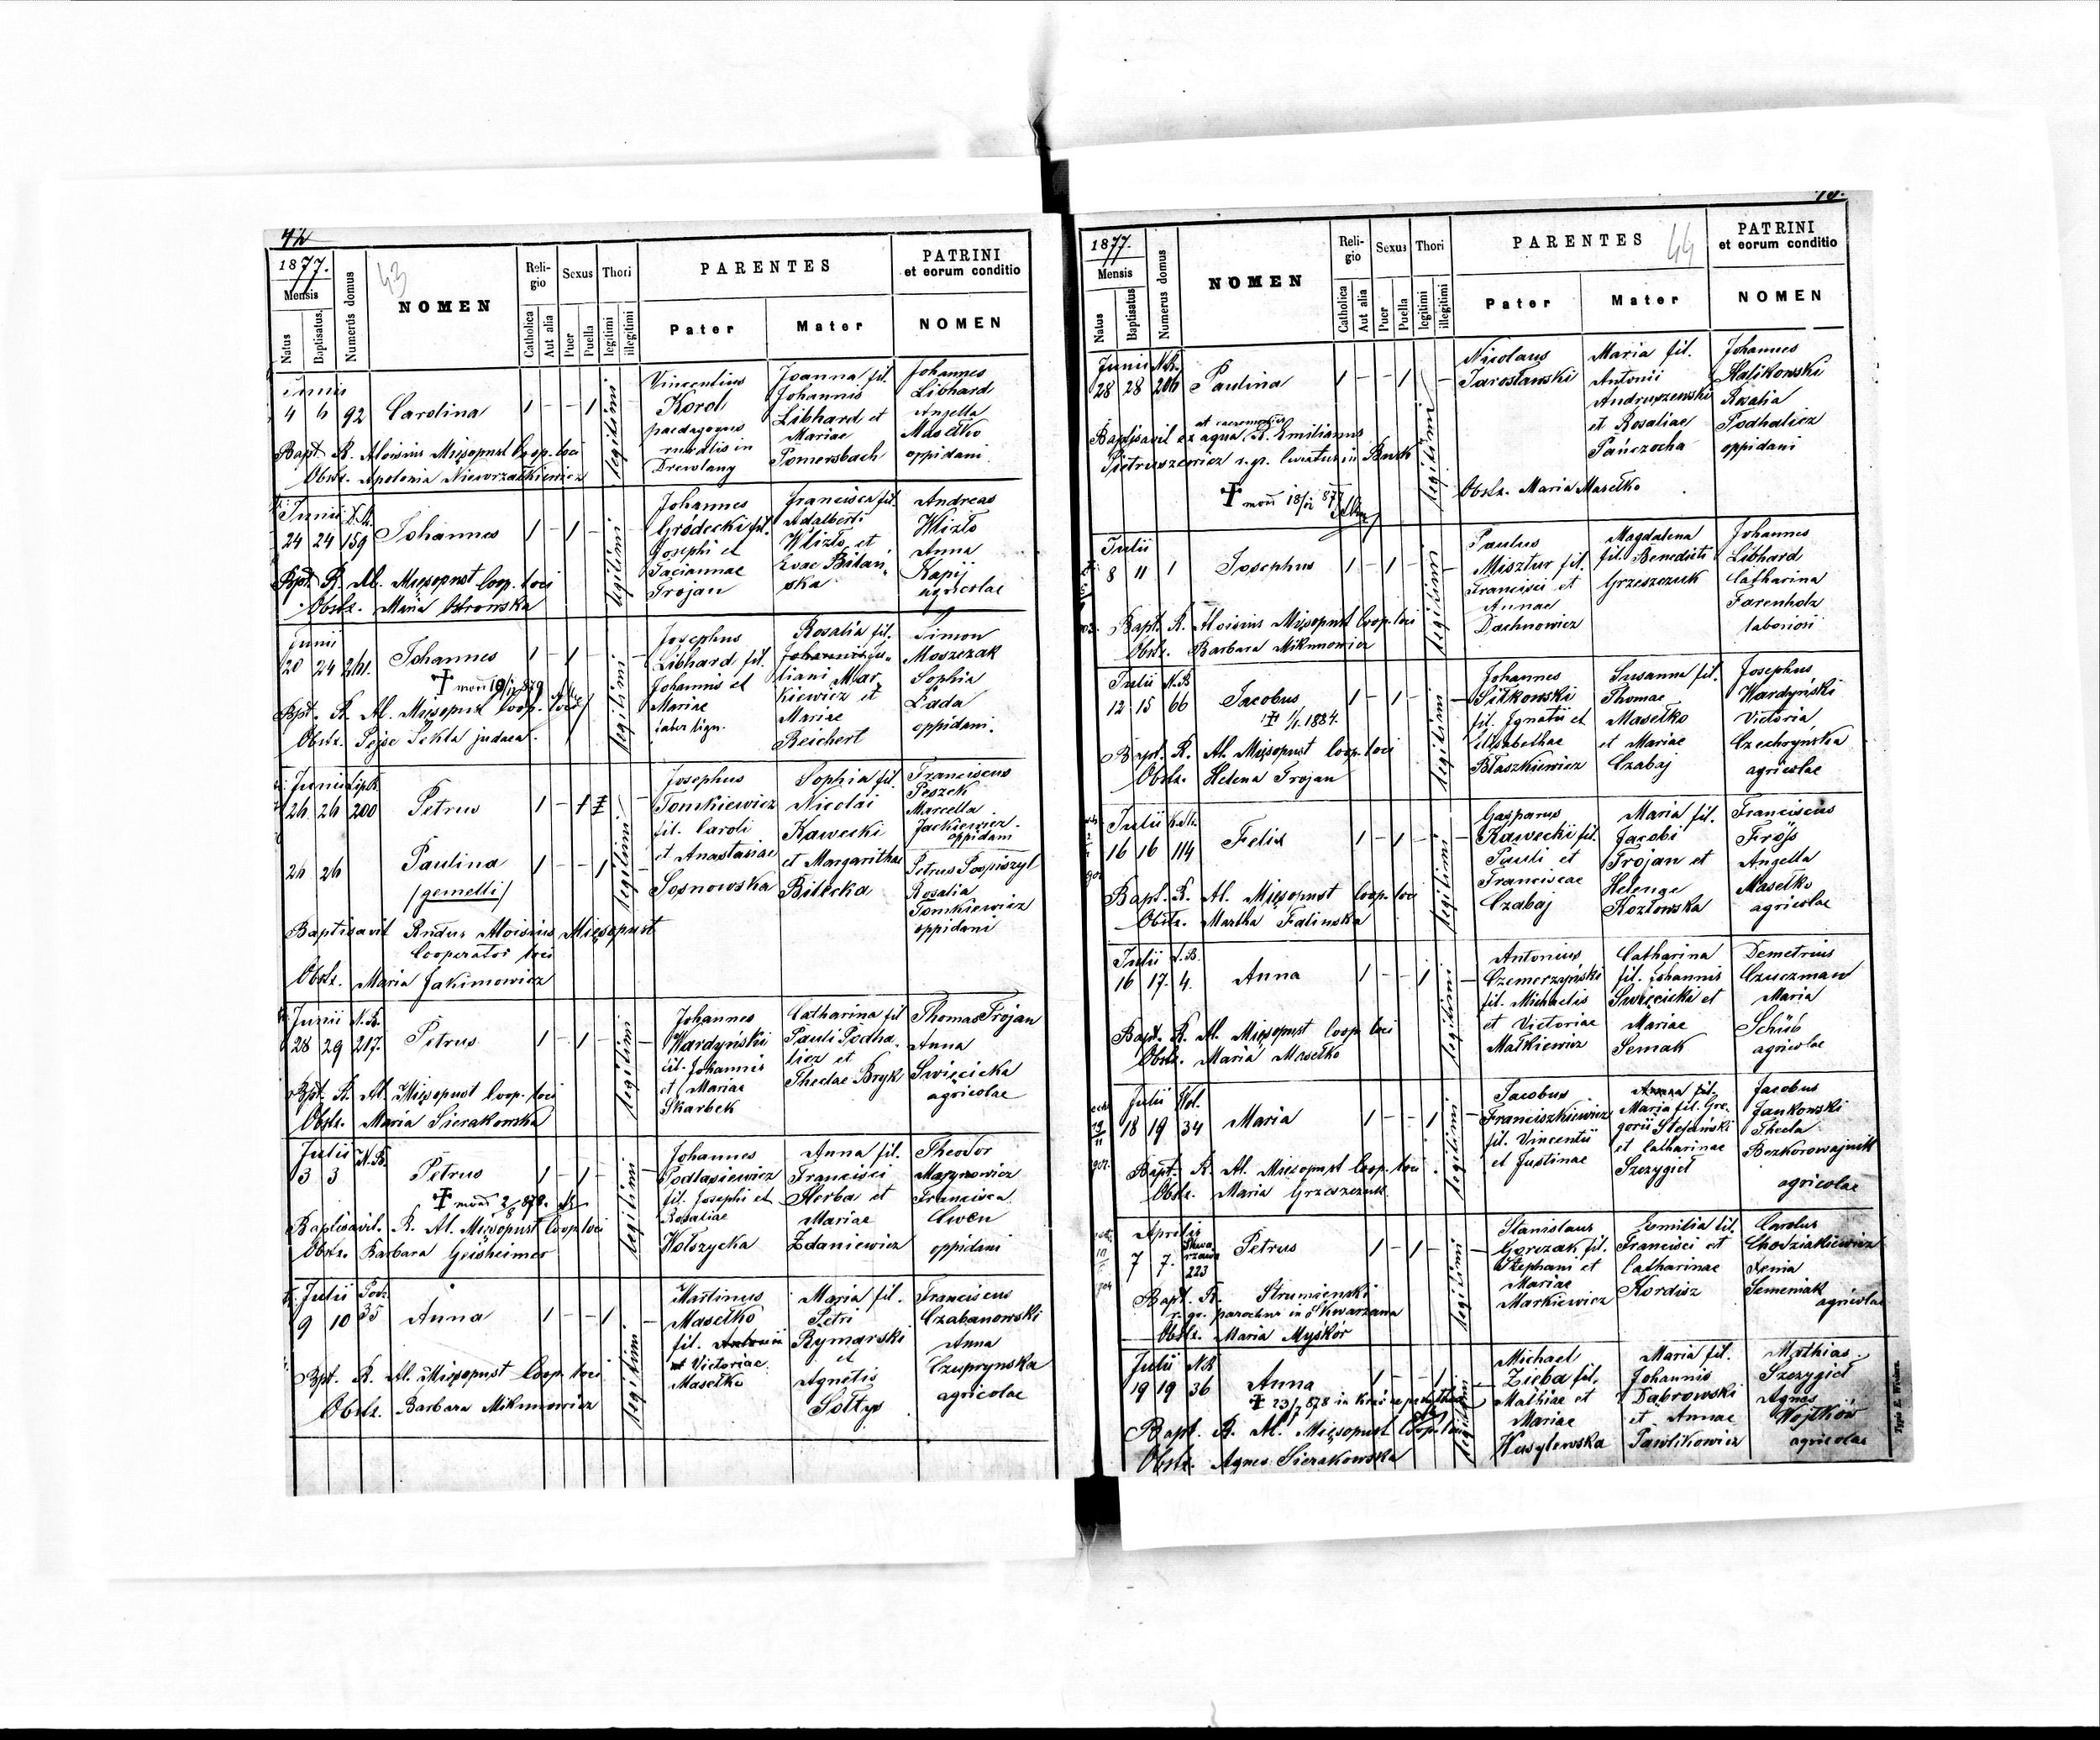 42
1877.
Mensis
Natus
Baptisatus
Numerus domus
43
NOMEN
Religio
Catholica
Aut alia
Sexus
Puer
Puella
Thori
legitimi
illegitimi
PARENTES
Pater
Mater
PATRINI
et eorum conditio
NOMEN
Junii
4 6 92 Carolina 1 - - 1 legitimi
Vincentius
Korol
paedagogus
ruralis in
Drewlany
Joanna fil.
Johannis
Libhard et
Mariae
Pomersbach
Johannes
Libhard
Angella
Masełko
oppidani
Bapt. R. Aloisius Mięsopust Coop. loci
Obstz. Apolonia Niewrzałkiewicz
Junii
24 24 159 Johannes 1 - 1 - legitimi
Johannes
Grodecki fil.
Josephi et
Taciannae
Trojan
Francisca fil.
Adalberti
Wlizło et
Evae Bilań„
ska
Andreas
Wlizło
Anna
Kapij
agricolae
Bpt. R. Al. Mięsopust Coop. loci
Obstz. Maria Ostrowska
Junii
20 24 261. Johannes 1 - 1 legitimi
Josephus
Libhard fil.
Johannis et
Mariae
faber lign.
Rosalia fil.
Johannis Ju„
liani Mar„
kiewicz et
Mariae
Reichert
Simon
Moszczak
Sophia
Łada
oppidani.
Bpt. R. Al. Mięsopust Coop. loci
Obstz. Pejse Sekla judaea.
Junii Lipb.
26 26 200 Petrus 1 - 1 legitimi
26 26 Paulina 1 - - 1
/gemelli/
Josephus
Tomkiewicz
fil. Caroli
et Anastasiae
Sosnowska
Sophia fil.
Nicolai
Kawecki
et Margarithae
Bilecka
Franciscus
Peszek
Marcella
Jackiewicz
oppidani
Petrus Pospiszyl
Rosalia
Tomkiewicz
oppidani
Baptisavit Rndus Aloisius Mięsopust
Cooperator loci
Obstz. Maria Jakimowicz
Junii N.B.
28 29 217. Petrus 1 - 1 - legitimi
Johannes
Wardyński
fil. Johannis
et Mariae
Skarbek
Catharina fil
Pauli Podha„
licz et
Theclae Bryk
Thomas Trojan
Anna
Swięcicka
agricolae
Bpt. R. Al. Mięsopust Coop. loci
Obstz. Maria Sierakowska
Julii N.B.
3 3 Petrus 1 - 1 - legitimi
Johannes
Podlasiewicz
fil. Josephi et
Rosaliae
Wołoszycka
Anna fil.
Francisci
Herba et
Mariae
Zdaniewicz
Theodor
Martynowicz
Francisca
Cwen
oppidani
Baptisavit. R. Al. Mięsopust Coop. loci
Obstz. Barbara Geisheimer
Julii Podz.
9 10 35 Anna 1 - - 1 legitimi
Martinus
Masełko
fil. Antonii
et Victoriae
Masełko
Maria fil.
Petri
Rymarski
et
Agnetis
Sołtys
Franciscus
Czabanowski
Anna
Czuprynska
agricolae
Bpt. R. Al. Mięsopust Coop. loci
Obstz. Barbara Mikunowicz
1877.
Mensis
Natus
Baptisatus
Numerus domus
NOMEN
Religio
Catholica
Aut alia
Sexus
Puer
Puella
Thori
legitimi
illegitimi
PARENTES
44
Pater
Mater
PATRINI
et eorum conditio
NOMEN
Junii N.B.
28 28 206 Paulina 1 - - 1 - legitimi
Nicolaus
Jarosławski
Maria fil.
Antonii
Andruszewski
et Rosaliae
Pańczocha
Johannes
Halikowski
Rosalia
Podhalicz
oppidani
Baptisavit ex aqua R. Emilianus
Pietruszewicz r. gr. Curatus in Busk
Obstz. Maria Masełko
Julii
8 11 1 Josephus 1 - 1 - legitimi
Paulus
Misztur fil.
Francisci et
Annae
Dachnowicz
Magdalena
fil. Benedicti
Grzeszczuk
Johannes
Libhard
Catharina
Farenholz
laboriosi
Bapt. R. Aloisius Mięsopust Coop. loci
Obstz. Barbara Mikunowicz
Julii N.B
12 15 66 Jacobus 1 - 1 - legitimi
1/1. 1884.
Johannes
Sitkowski
fil. Ignatii et
Elisabethae
Błaszkiewicz
Susanna fil.
Thomae
Masełko
et Mariae
Czabaj
Josephus
Wardyński
Victoria
Czechryńska
agricolae
Bapt. R. Al. Mięsopust Coop. loci
Obstz. Helena Trojan
Julii
16 16 114 Felix 1 - 1 - legitimi
Gasparus
Kawecki fil.
Pauli et
Franciscae
Czabaj
Maria fil.
Jacobi
Trojan et
Helenae
Kozłowska
Franciscus
Angella
Masełko
agricolae
Bapt. R. Al. Mięsopust Coop. loci
Obstz. Martha Falinska
Julii
16 17. 4. Anna 1 - - 1 - legitimi
Antonius
Czemerzyński
fil. Michaelis
et Victoriae
Małkiewicz
Catharina
fil. Johannis
Swięcicki et
Mariae
Semak
Demetrius
Czuczman
Maria
Schüb
agricolae
Bapt. R. Al. Mięsopust Coop. loci
Obstz. Maria Masełko
Julii Wol.
18 19 34 Maria 1 - - 1 - legitimi
Jacobus
Franciszkiewicz
fil. Vincentii
et Justinae
Anna fil.
Maria fil. Gre„
gorii Stefański
et Catharinae
Szczygieł
Jacobus
Jankowski
Thecla
Bezkorowajnik
agricolae
Bapt. R. Al. Mięsopust Coop. loci
Obstz. Maria Grzeszczuk
Aprilis
7 7. Skwa„
rzawa
223
Petrus 1 - 1 - legitimi
Stanislaus
Gorczak fil.
Stephani et
Mariae
Markiewicz
Emilia fil.
Francisci et
Catharinae
Kordisz
Carolus
Chodziakiewicz
Xenia
Semeniak
agricolae
Bapt. R. Strumienski
r. gr. parochus in Skwarzawa
Obstz. Maria Myśkór
Julii N.B
19 19 36 Anna 1 - - 1 - legitimi
Michael
Zieba fil.
Mathiae et
Mariae
Wasylewska
Maria fil.
Johannis
Dąbrowski
et Annae
Pawlikowicz
Mathias
Szczygieł
Agnes
Wojtków
agricolae
Bapt. R. Al. Mięsopust Coop. loci
Obstz. Agnes Sierakowska